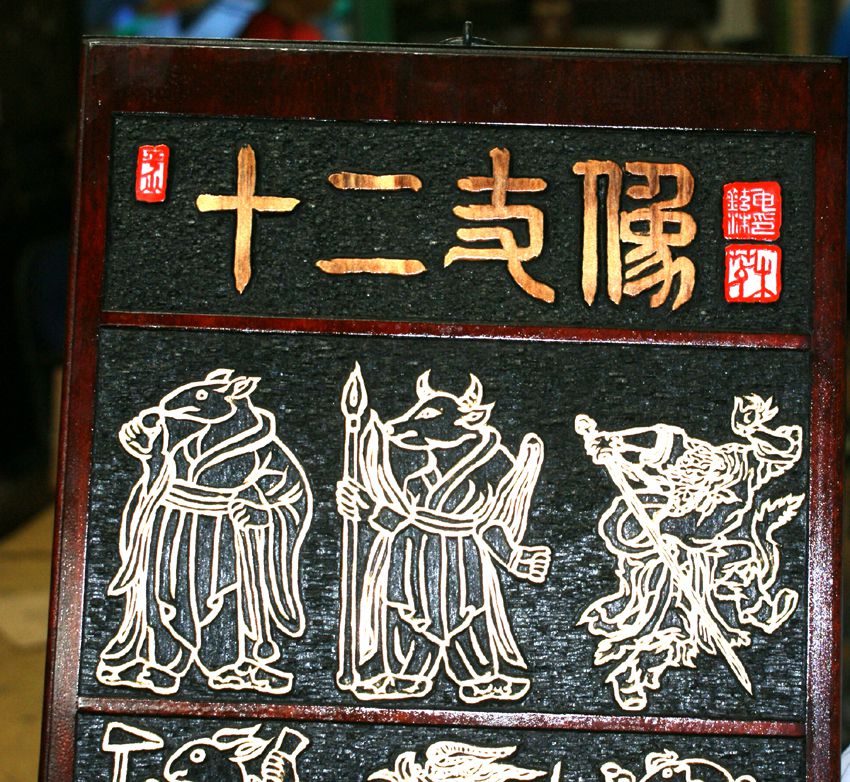 十二支像